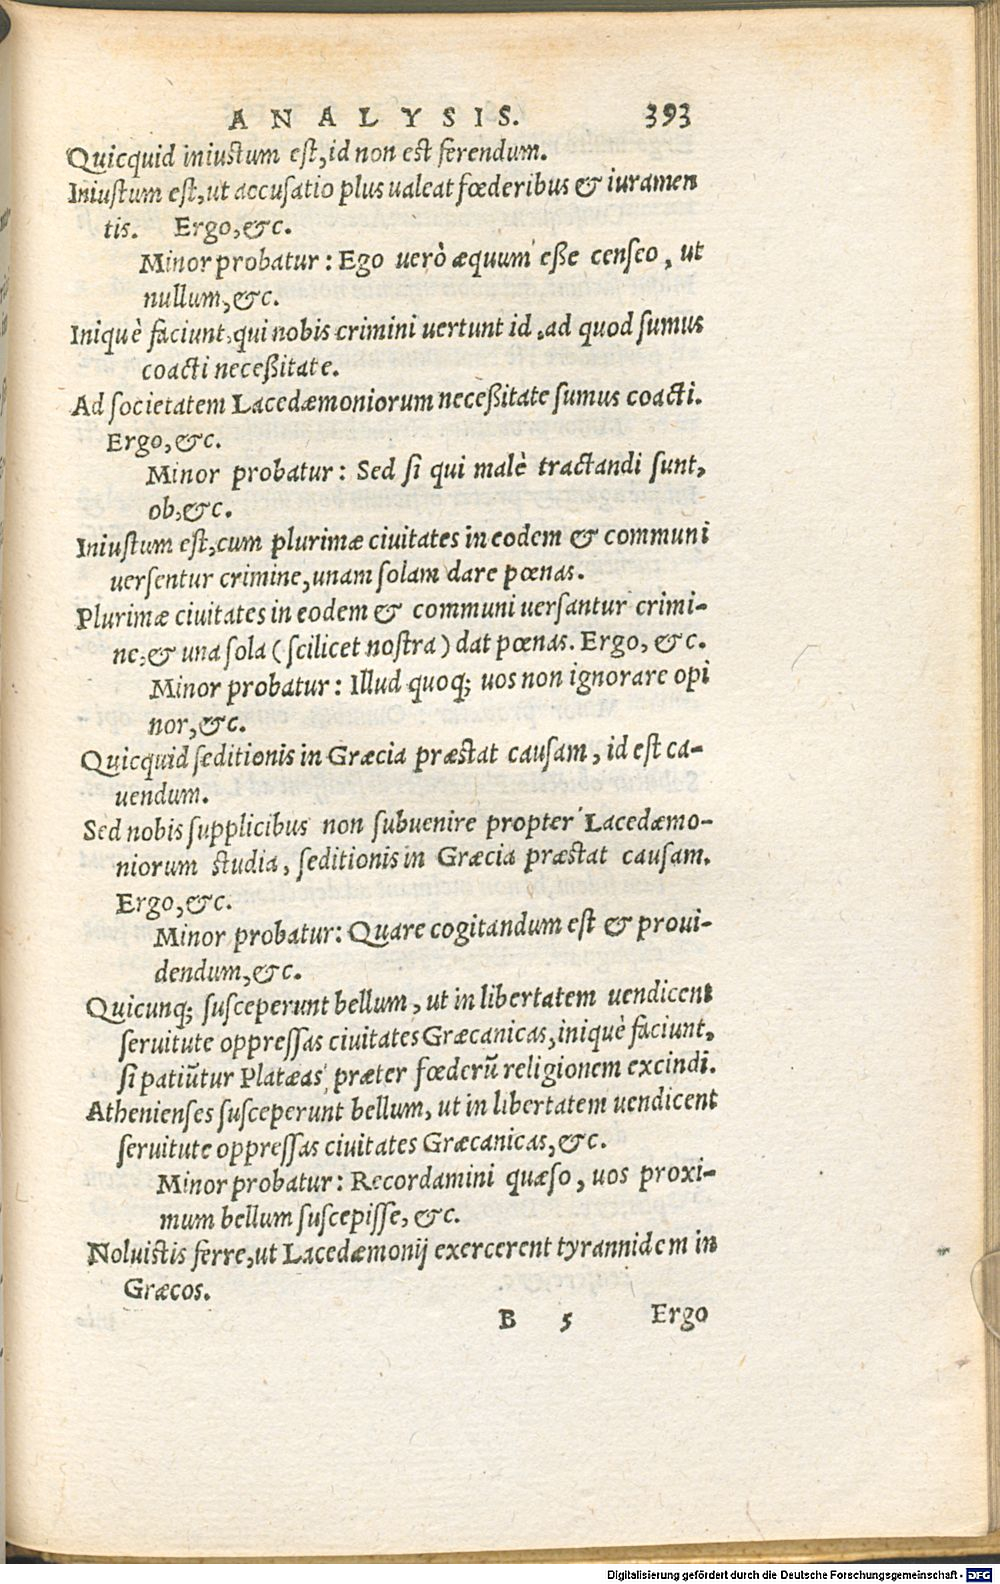 ANALYSIS. 393
Quicquid iniustum est, id non est ferendum.
Iniustum est, ut accusatio plus ualeat fœderibus & iuramen
tis. Ergo, &c.
Minor probatur: Ego verò æquum esse censeo, ut
nullum, &c.
Iniquè faciunt, qui nobis crimini uertunt id, ad quod sumus
coacti necessitate.
Ad societatem Lacedæmoniorum necessitate sumus coacti.
Ergo, &c.
Minor probatur: Sed si qui malè tractandi sunt,
ob, &c.
Iniustum est, cum plurimæ ciuitates in eodem & communi
uersentur crimine, unam solam dare pœnas.
Plurimæ ciuitates in eodem & communi uersantur crimi-
ne, & una sola (scilicet nostra) dat pœnas. Ergo, &c.
Minor probatur: Illud quoq; uos non ignorare opi
nor, &c.
Quicquid seditionis in Græcia præstat causam, id est ca-
uendum.
Sed nobis supplicibus non subuenire propter Lacedæmo-
niorum studia, seditionis in Græcia præstat causam.
Ergo, &c.
Minor probatur: Quare cogitandum est & proui-
dendum, &c.
Quicunq; susceperunt bellum, ut in libertatem uendicent
seruitute oppressas ciuitates Græcanicas, iniquè faciunt,
si patiũtur Platæas præter fœderũ religionem excindi.
Athenienses susceperunt bellum, ut in libertatem uendicent
seruitute oppressas ciuitates Græcanicas, &c.
Minor probatur: Recordamini quæso, uos proxi-
mum bellum suscepisse, &c.
Noluistis ferre, ut Lacedæmonij exercerent tyrannidem in
Græcos.
B 5 Ergo
Digitalisierung gefördert durch die Deutsche Forschungsgemeinschaft - DFG